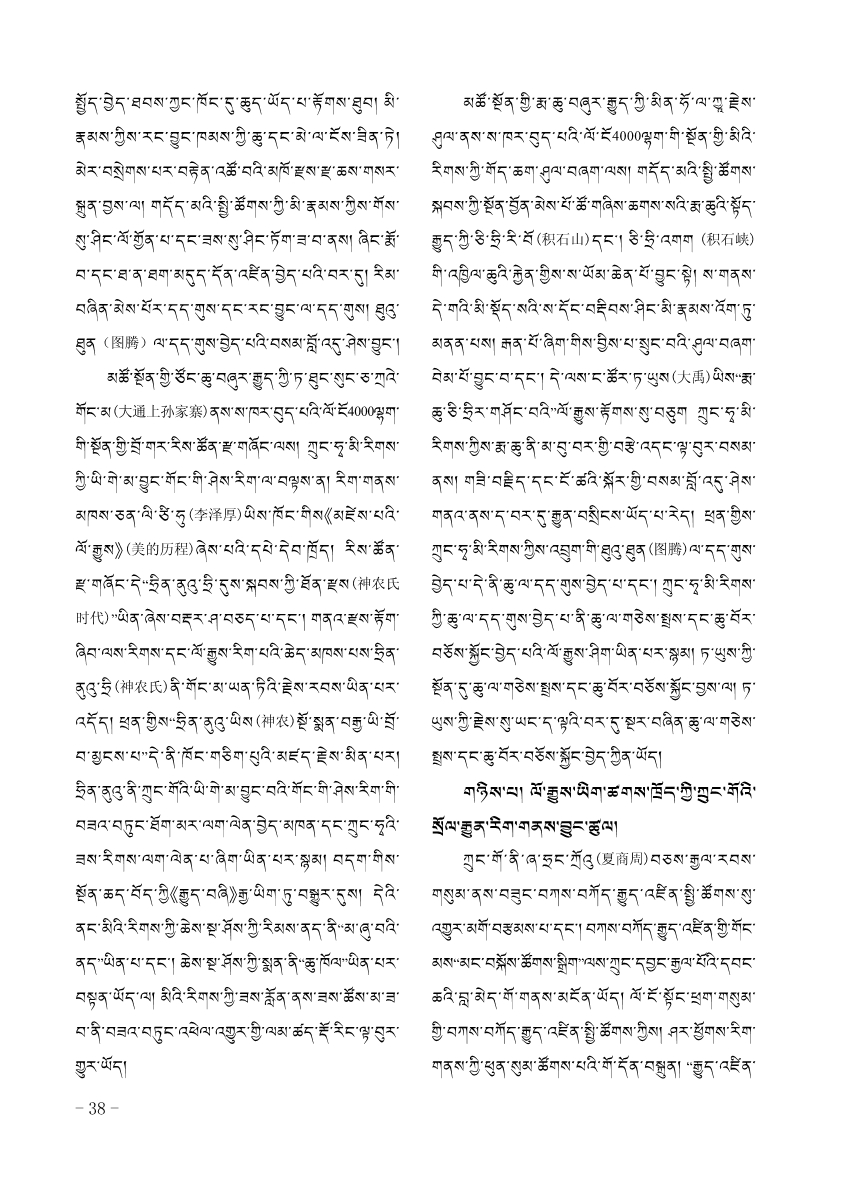 སྤྱོད་བྱེད་ཐབས་ཀྱང་ཁོང་དུ་ཆུད་ཡོད་པ་རྟོགས་ཐུབ། མི་
རྣམས་ཀྱིས་རང་བྱུང་ཁམས་ཀྱི་ཆུ་དང་མེ་ལ་ངོས་ཟིན་ཏེ།
མེར་བསྲེགས་པར་བརྟེན་འཚོ་བའི་མཁོ་རྫས་རྫ་ཆས་གསར་
སྐྲུན་བྱས་ལ། གདོད་མའི་སྤྱི་ཚོགས་ཀྱི་མི་རྣམས་ཀྱིས་གོས་
སུ་ཤིང་ལོ་གྱོན་པ་དང་ཟས་སུ་ཤིང་ཏོག་ཟ་བ་ནས། ཞིང་རྨོ་
བ་དང་ཐ་ན་ཐག་མདུད་དོན་འཛིན་བྱེད་པའི་བར་དུ། རིམ་
བཞིན་མེས་པོར་དད་གུས་དང་རང་བྱུང་ལ་དད་གུས། ཐུའུ་
ཐུན（图腾）ལ་དད་གུས་བྱེད་པའི་བསམ་བློ་འདུ་ཤེས་བྱུང་།
མཚོ་སྔོན་གྱི་ཙོང་ཆུ་བཞུར་རྒྱུད་ཀྱི་ཏ་ཐུང་སུང་ཅ་ཀྲའེ་
གོང་མ(大通上孙家寨)ནས་ས་ཁར་བུད་པའི་ལོ་ངོ4000ལྷག་
གི་སྔོན་གྱི་བྲོ་གར་རིས་ཚོན་རྫ་གཞོང་ལས། ཀྲུང་ཧྭ་མི་རིགས་
ཀྱི་ཡི་གེ་མ་བྱུང་གོང་གི་ཤེས་རིག་ལ་བལྟས་ན། རིག་གནས་
མཁས་ཅན་ལི་ཙེ་ཧུ(李泽厚)ཡིས་ཁོང་གིས《མཛེས་པའི་
ལོ་རྒྱུས》(美的历程)ཞེས་པའི་དཔེ་དེབ་ཁྲོད། རིས་ཚོན་
རྫ་གཞོང་དེ“ཧྲིན་ནུའུ་ཧྲི་དུས་སྐབས་ཀྱི་ཐོན་རྫས(神农氏
时代)”ཡིན་ཞེས་བརྡར་ཤ་བཅད་པ་དང་། གནའ་རྫས་རྟོག་
ཞིབ་ལས་རིགས་དང་ལོ་རྒྱུས་རིག་པའི་ཆེད་མཁས་པས་ཧྲིན་
ནུའུ་ཧྲི(神农氏)ནི་གོང་མ་ཡན་ཏིའི་རྗེས་རབས་ཡིན་པར་
འདོད། ཕྲན་གྱིས“ཧྲིན་ནུའུ་ཡིས(神农)སྔོ་སྨན་བརྒྱ་ཡི་བྲོ་
བ་མྱངས་པ”དེ་ནི་ཁོང་གཅིག་པུའི་མཛད་རྗེས་མིན་པར།
ཧྲིན་ནུའུ་ནི་ཀྲུང་གོའི་ཡི་གེ་མ་བྱུང་བའི་གོང་གི་ཤེས་རིག་གི་
བཟའ་བཏུང་ཐོག་མར་ལག་ལེན་བྱེད་མཁན་དང་ཀྲུང་ཧྭའི་
ཟས་རིགས་ལག་ལེན་པ་ཞིག་ཡིན་པར་སྙམ། བདག་གིས་
སྔོན་ཆད་བོད་ཀྱི《རྒྱུད་བཞི》རྒྱ་ཡིག་ཏུ་བསྒྱུར་དུས། དེའི་
ནང་མིའི་རིགས་ཀྱི་ཆེས་སྔ་ཤོས་ཀྱི་རིམས་ནད་ནི“མ་ཞུ་བའི་
ནད”ཡིན་པ་དང་། ཆེས་སྔ་ཤོས་ཀྱི་སྨན་ནི“ཆུ་ཁོལ”ཡིན་པར་
བསྟན་ཡོད་ལ། མིའི་རིགས་ཀྱི་ཟས་རློན་ནས་ཟས་ཚོས་མ་ཟ་
བ་ནི་བཟའ་བཏུང་འཕེལ་འགྱུར་གྱི་ལམ་ཚད་རྡོ་རིང་ལྟ་བུར་
གྱུར་ཡོད།
མཚོ་སྔོན་གྱི་རྨ་ཆུ་བཞུར་རྒྱུད་ཀྱི་མིན་ཧོ་ལ་ཀྱཱ་རྗེས་
ཤུལ་ནས་ས་ཁར་བུད་པའི་ལོ་ངོ4000ལྷག་གི་སྔོན་གྱི་མིའི་
རིགས་ཀྱི་གོད་ཆག་ཤུལ་བཞག་ལས། གདོད་མའི་སྤྱི་ཚོགས་
སྐབས་ཀྱི་སྔོན་བྱོན་མེས་པོ་ཚོ་གཞིས་ཆགས་སའི་རྨ་ཆུའི་སྟོད་
རྒྱུད་ཀྱི་ཅི་ཧྲི་རི་བོ(积石山)དང་། ཅི་ཧྲི་འགག (积石峡)
གི་འཁྱིལ་ཆུའི་རྐྱེན་གྱིས་ས་ཡོམ་ཆེན་པོ་བྱུང་སྟེ། ས་གནས་
དེ་གའི་མི་སྡོད་སའི་ས་དོང་བརྡིབས་ཤིང་མི་རྣམས་འོག་ཏུ་
མནན་པས། རྒན་པོ་ཞིག་གིས་བྱིས་པ་སྲུང་བའི་ཤུལ་བཞག་
བེམ་པོ་བྱུང་བ་དང་། དེ་ལས་ང་ཚོར་ཏ་ཡུས(大禹)ཡིས“རྨ་
ཆུ་ཅི་ཧྲིར་གཤོང་བའི”ལོ་རྒྱུས་རྟོགས་སུ་བཅུག ཀྲུང་ཧྭ་མི་
རིགས་ཀྱིས་རྨ་ཆུ་ནི་མ་བུ་བར་གྱི་བརྩེ་འདང་ལྟ་བུར་བསམ་
ནས། གཟི་བརྗིད་དང་ངོ་ཚའི་སྐོར་གྱི་བསམ་བློ་འདུ་ཤེས་
གནའ་ནས་ད་བར་དུ་རྒྱུན་བསྲིངས་ཡོད་པ་རེད། ཕྲན་གྱིས་
ཀྲུང་ཧྭ་མི་རིགས་ཀྱིས་འབྲུག་གི་ཐུའུ་ཐུན(图腾)ལ་དད་གུས་
བྱེད་པ་དེ་ནི་ཆུ་ལ་དད་གུས་བྱེད་པ་དང་། ཀྲུང་ཧྭ་མི་རིགས་
ཀྱི་ཆུ་ལ་དད་གུས་བྱེད་པ་ནི་ཆུ་ལ་གཅེས་སྤྲས་དང་ཆུ་བོར་
བཅོས་སྐྱོང་བྱེད་པའི་ལོ་རྒྱུས་ཤིག་ཡིན་པར་སྙམ། ཏ་ཡུས་ཀྱི་
སྔོན་དུ་ཆུ་ལ་གཅེས་སྤྲས་དང་ཆུ་བོར་བཅོས་སྐྱོང་བྱས་ལ། ཏ་
ཡུས་ཀྱི་རྗེས་སུ་ཡང་ད་ལྟའི་བར་དུ་སྔར་བཞིན་ཆུ་ལ་གཅེས་
སྤྲས་དང་ཆུ་བོར་བཅོས་སྐྱོང་བྱེད་ཀྱིན་ཡོད།
གཉིས་པ། ལོ་རྒྱུས་ཡིག་ཚགས་ཁྲོད་ཀྱི་ཀྲུང་གོའི་
སྲོལ་རྒྱུན་རིག་གནས་བྱུང་ཚུལ།
ཀྲུང་གོ་ནི་ཞ་ཧྲང་ཀྲོའུ(夏商周)བཅས་རྒྱལ་རབས་
གསུམ་ནས་བཟུང་བཀས་བཀོད་རྒྱུད་འཛིན་སྤྱི་ཚོགས་སུ་
འགྱུར་མགོ་བརྩམས་པ་དང་། བཀས་བཀོད་རྒྱུད་འཛིན་གྱི་གོང་
མས“མང་བསྐོས་ཚོགས་སྒྲིག”ལས་ཀྲུང་དབྱང་རྒྱལ་པོའི་དབང་
ཆའི་བླ་མེད་གོ་གནས་མངོན་ཡོད། ལོ་ངོ་སྟོང་ཕྲག་གསུམ་
གྱི་བཀས་བཀོད་རྒྱུད་འཛིན་སྤྱི་ཚོགས་ཀྱིས། ཤར་ཕྱོགས་རིག་
གནས་ཀྱི་ཕུན་སུམ་ཚོགས་པའི་གོ་དོན་བསྐྲུན། “རྒྱུད་འཛིན་
- 38 -